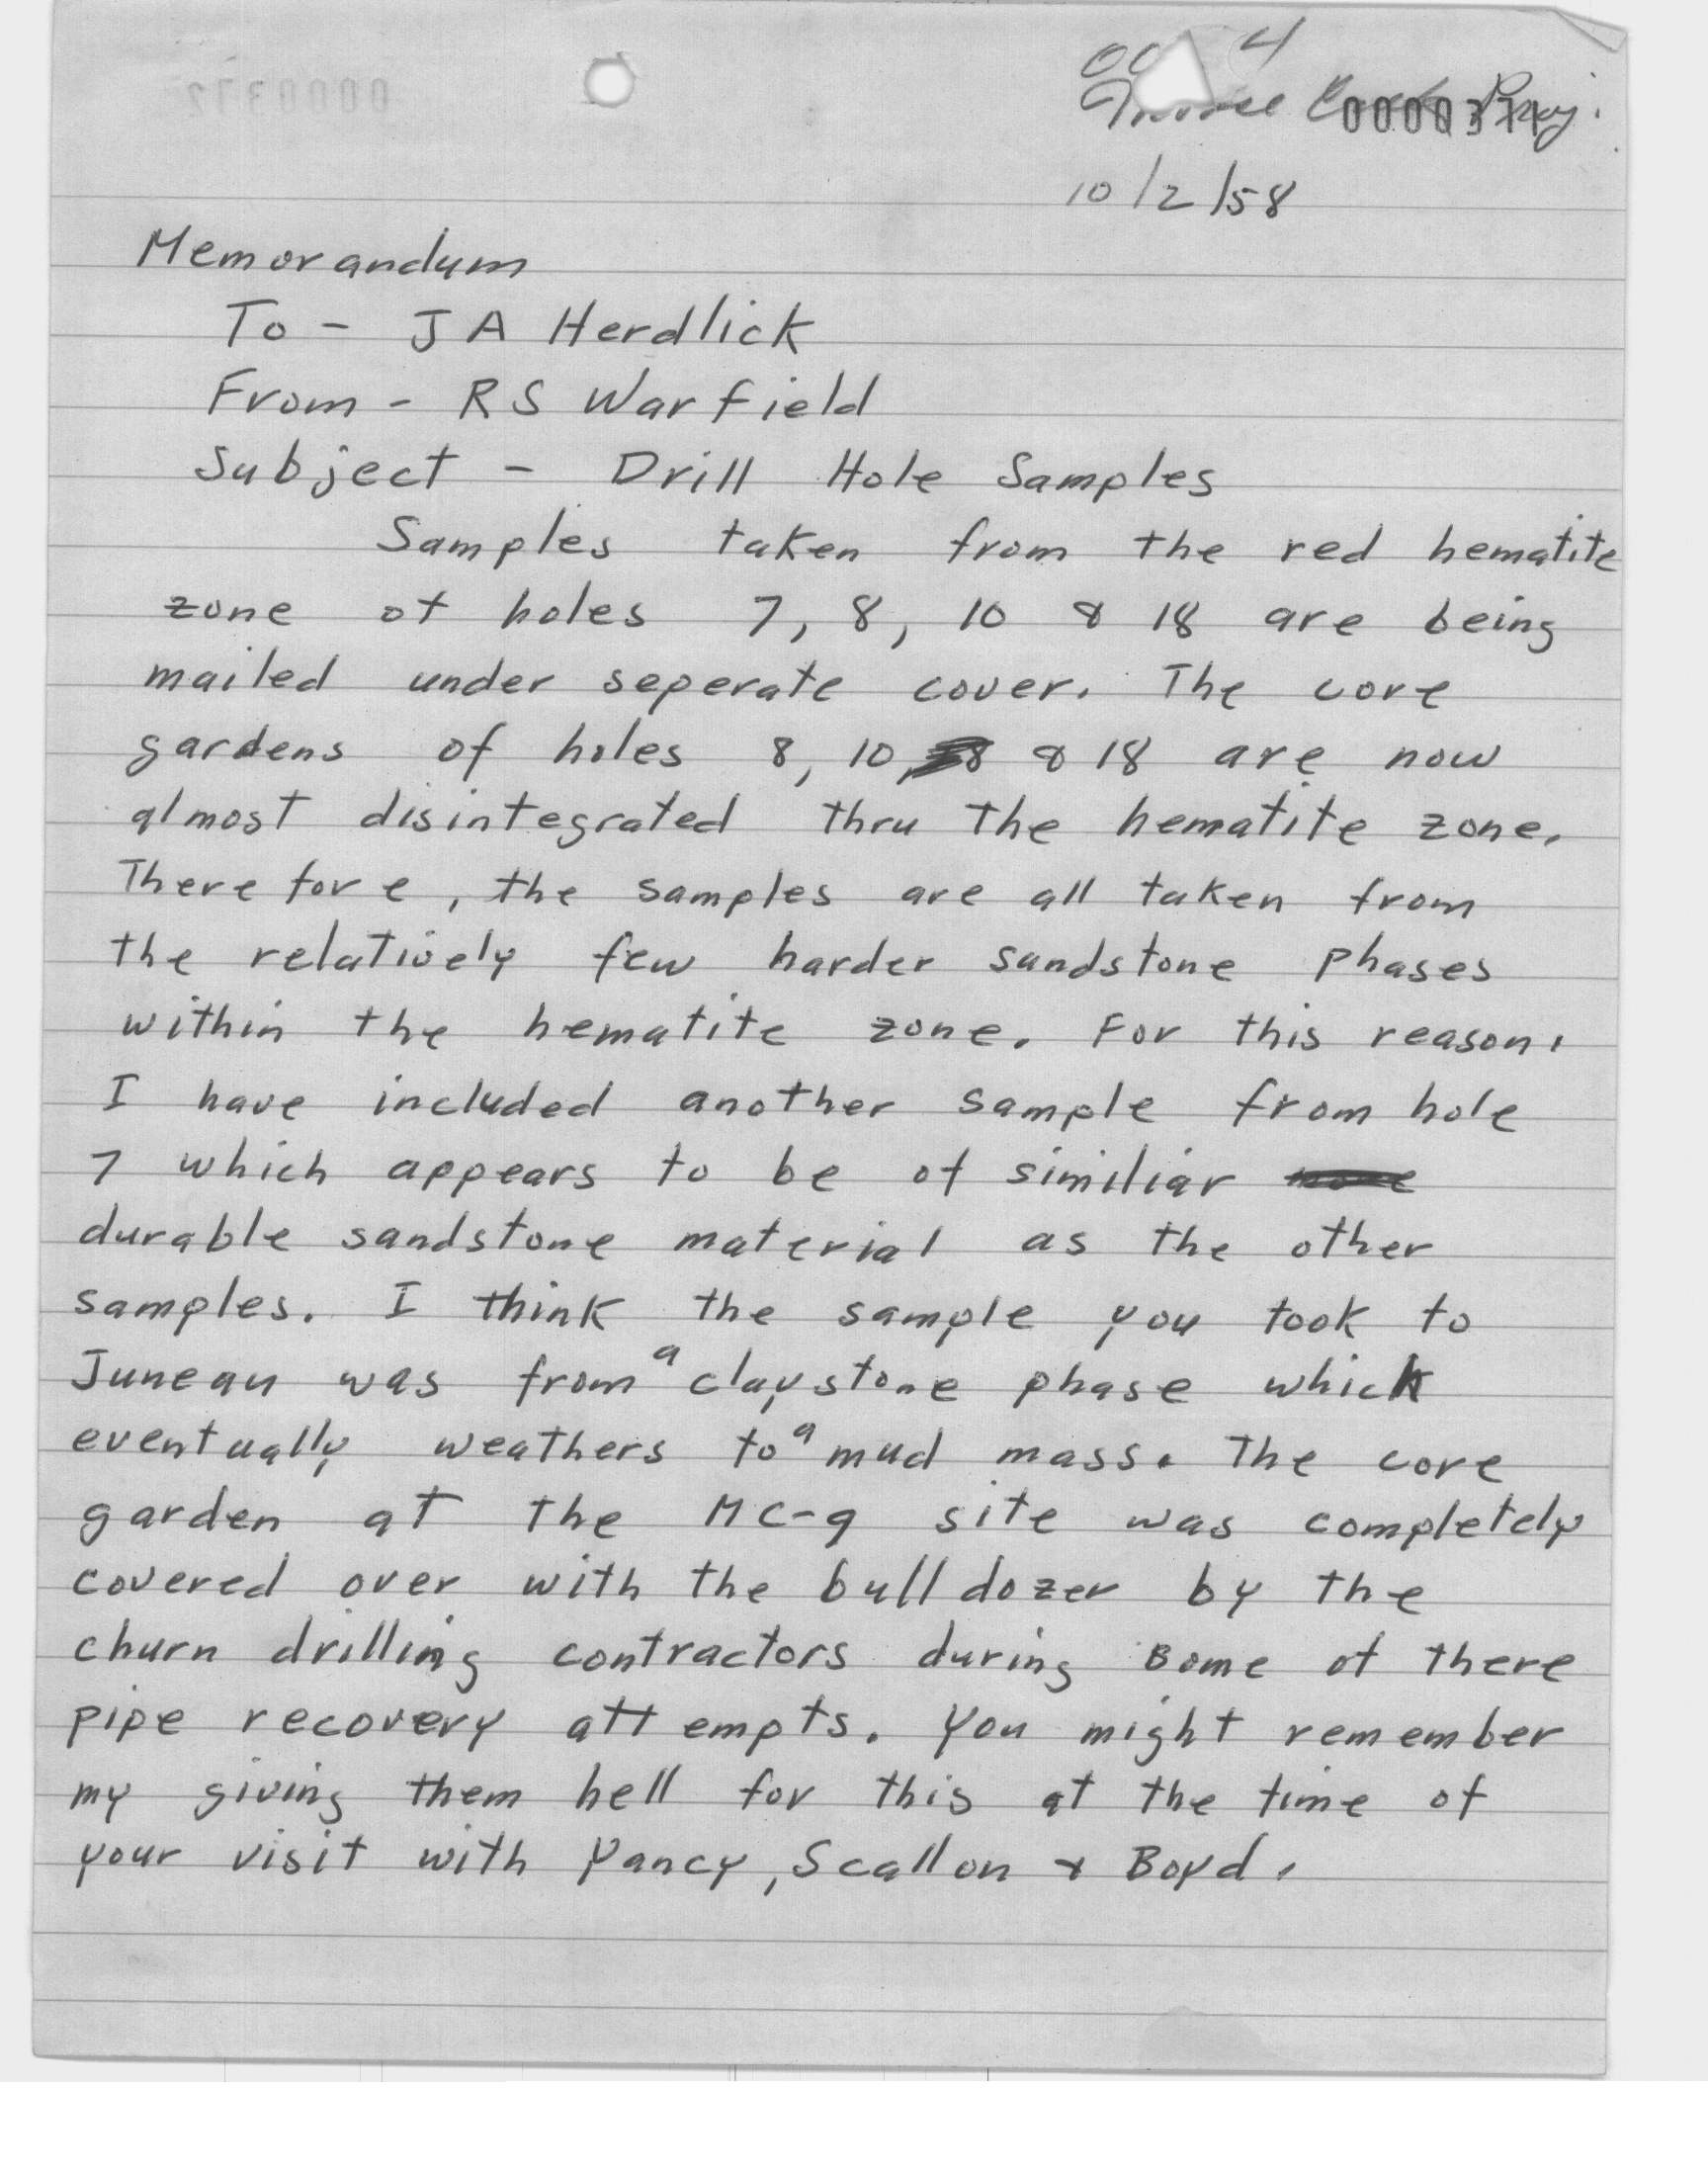 0000371
10/2/58
Memorandum
To - J A Herdlick
From - RS Warfield
Subject - Drill Hole Samples
Samples taken from the red hematite
zone of holes 7, 8, 10 & 18 are being
mailed under seperate cover. The core
gardens of holes 8, 10, & 18 are now
almost disintegrated thru the hematite zone.
Therefore, the samples are all taken from
the relatively few harder sandstone phases
within the hematite zone. For this reason,
I have included another sample from hole
7 which appears to be of similiar
durable sandstone material as the other
samples. I think the sample you took to
Juneau was from a claystone phase which
eventually weathers to a mud mass. The core
garden at the MC-9 site was completely
covered over with the bulldozer by the
churn drilling contractors during some of there
pipe recovery attempts. You might remember
my giving them hell for this at the time of
your visit with Yancy, Scallon & Boyd.